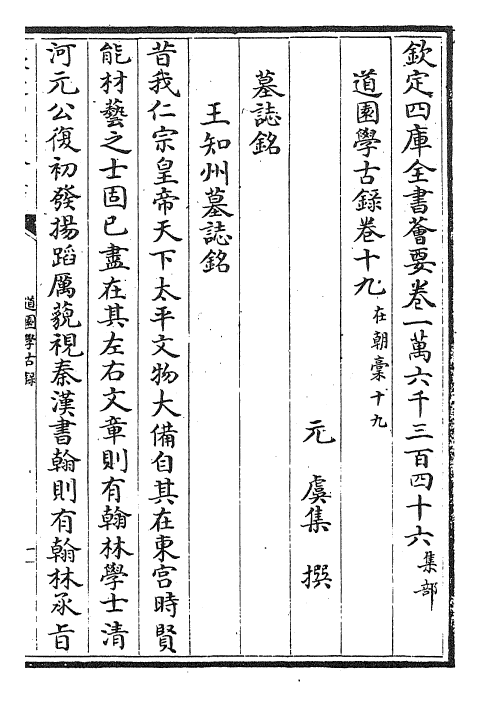 欽定四庫全書薈要卷一萬六千三百四十六集部
道園學古錄卷十九在朝稾十九
元 虞集 撰
墓誌銘
王知州墓誌銘
昔我仁宗皇帝天下太平文物大備自其在東宮時賢
能材藝之士固已盡在其左右文章則有翰林學士清
河元公復初發揚蹈厲藐視秦漢書翰則有翰林承旨
道園學古錄